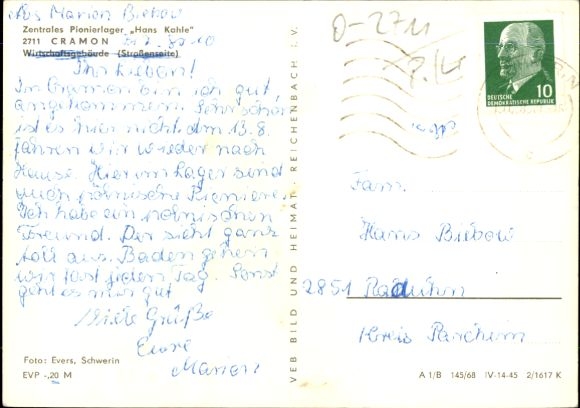 Abs Marion Biebow
Zentrales Pionierlager „Hans Kahle"
2711 CRAMON
Wirtschaftsgebäude (Straßenseite)
Ihr Lieben!
In Cramon bin ich gut
angekommen. Sehr schön
ist es hier nicht. Am 13.8.
fahren wir wieder nach
Hause. Hier im Lager sind
auch polnische Pioniere.
Ich habe ein polnischen
Freund. Der sieht ganz
toll aus. Baden gehen
wir fast jeden Tag. Sonst
geht es mir gut
Viele Grüße
Eure
Marion
Foto: Evers, Schwerin
EVP -,20 M
VEB BILD UND HEIMAT · REICHENBACH i. V.
D-2711
DEUTSCHE
DEMOKRATISCHE REPUBLIK
10
Fam.
Hans Biebow
2851 Raduhn
Kreis Parchim
A 1/B 145/68 IV-14-45 2/1617 K